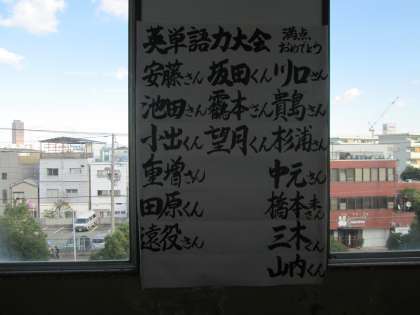 英単語力大会 満点
おめでとう
安藤さん 坂田くん 川口さん
池田さん 靏本さん 貴島さん
小出くん 望月くん 杉浦さん
重増さん 中元さん
田原くん 橋本さん
遠役さん 三木くん
山内くん